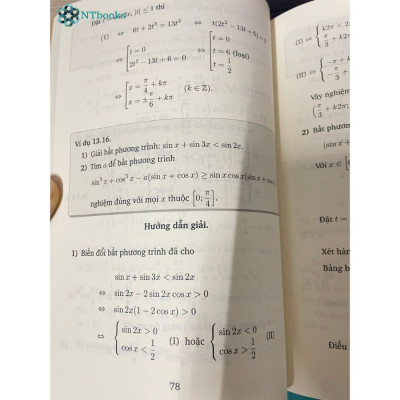 NTbooks
Đặt t = cos 2x, |t| ≤ 1 thì
(1) ⇔ 6t + 2t³ = 13t² ⇔ t(2t² − 13t + 6) = 0
⇔ [ t = 0
2t² − 13t + 6 = 0 ⇔ [ t = 0
t = 6 (loại)
t = 1/2
⇔ [ x = π/4 + kπ
x = ± π/6 + kπ (k ∈ ℤ).
Ví dụ 13.16.
1) Giải bất phương trình: sin x + sin 3x < sin 2x.
2) Tìm a để bất phương trình
sin³ x + cos³ x − a(sin x + cos x) ≥ sin x cos x(sin x + cos
nghiệm đúng với mọi x thuộc [0; π/4].
Hướng dẫn giải.
1) Biến đổi bất phương trình đã cho
sin x + sin 3x < sin 2x
⇔ sin 2x − 2 sin 2x cos x > 0
⇔ sin 2x(1 − 2 cos x) > 0
⇔ { sin 2x > 0
cos x < 1/2 (I) hoặc { sin 2x < 0
cos x > 1/2 (II)
78
(I) ⇔ { k2π <
π/3 + k2
(II) ⇔ {
−π/3 +
Vậy nghiệm
(π/3 + k2π;
2) Bất phươn
(sin x +
Với x ∈ [
Đặt t =
Xét hàn
Bảng b
Điều